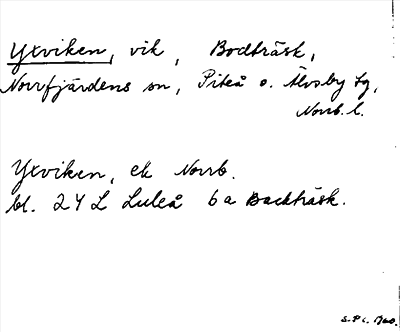 Yxviken, vik, Bodträsk,
Norrfjärdens sn, Piteå o. Älvsby tg,
Norrb. l.
Yxviken, ek Norrb.
bl. 24 L Luleå 6a Backträsk.